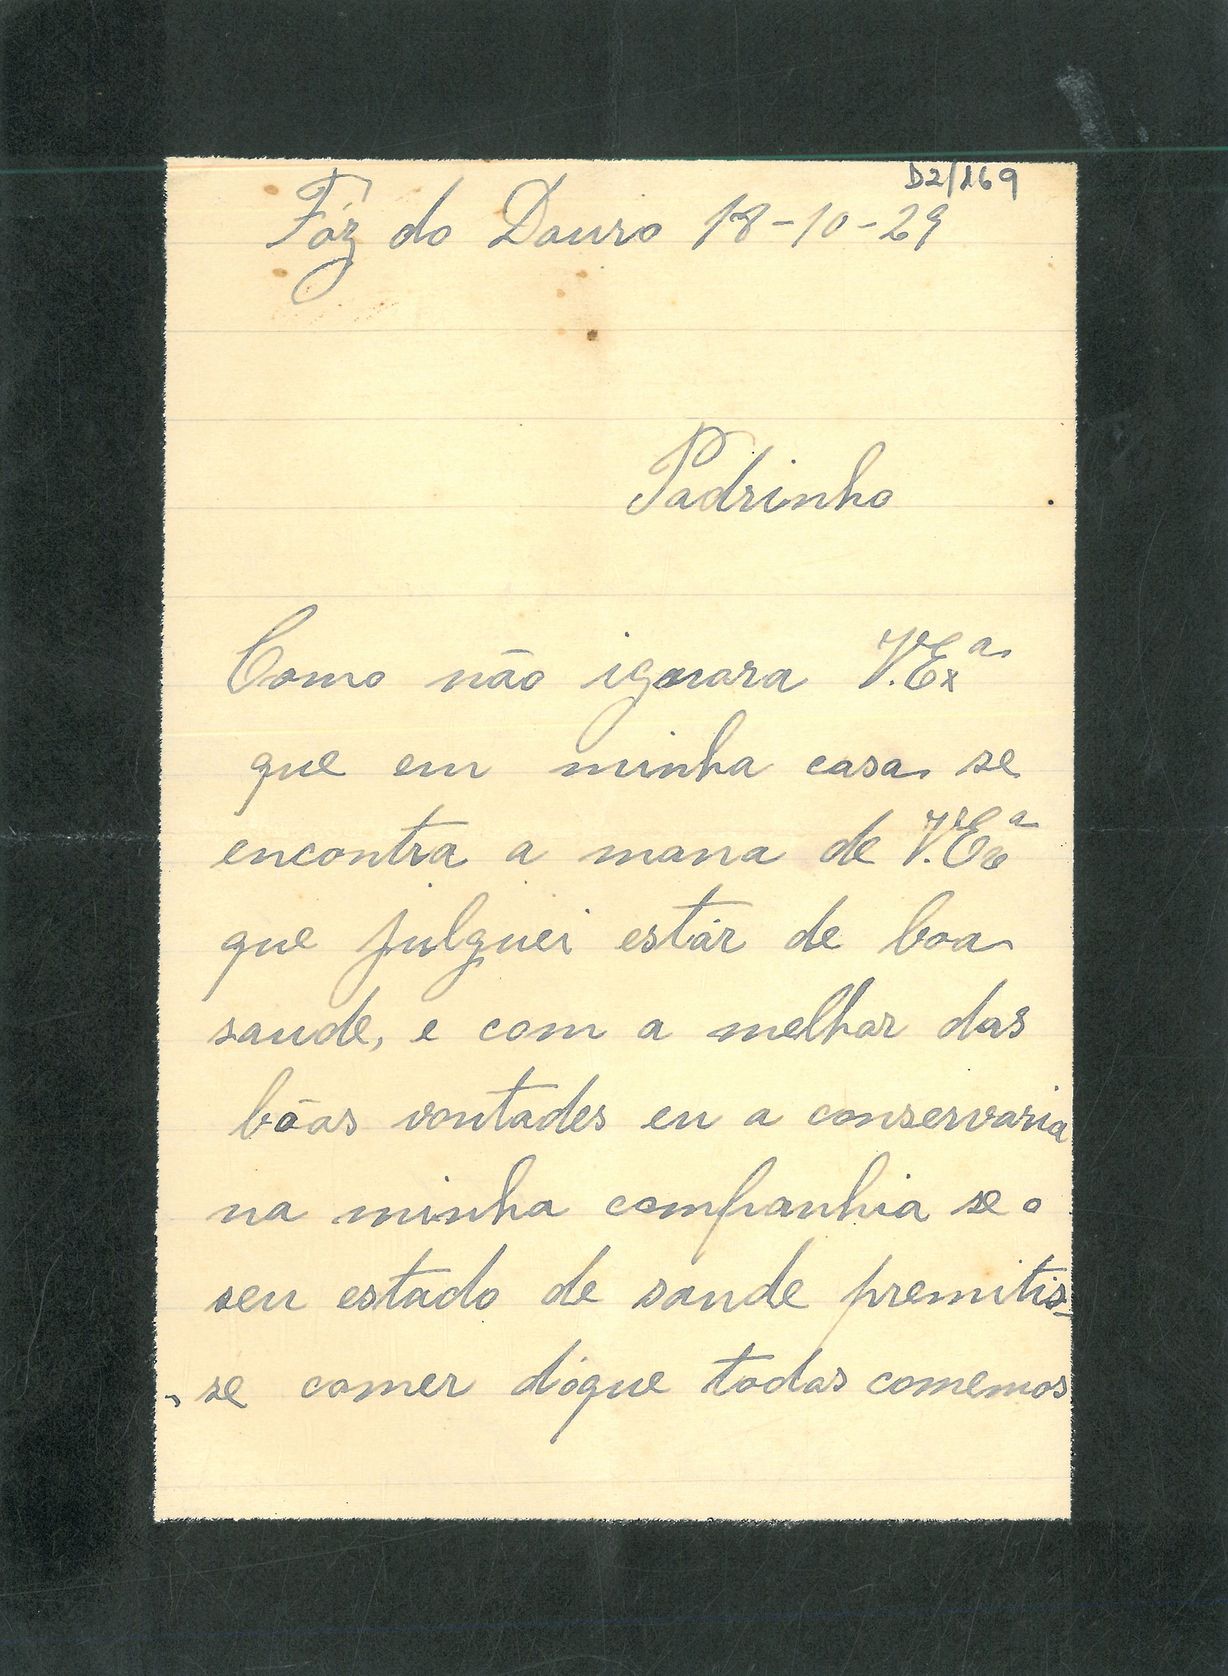 D2/169
Fóz do Douro 18-10-29
Padrinho
Como não ignorara V.Exª
que em minha casa se
encontra a mana de V.Exª
que julguei estár de boa
saude, e com a melhor das
bôas vontades eu a conservaria
na minha companhia se o
seu estado de saude premitis-
-se comer dóque todos comemos